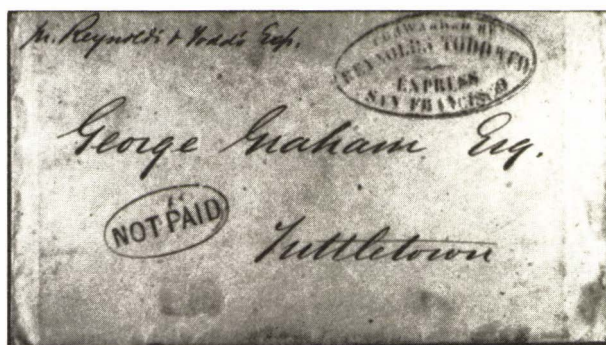 pr. Reynolds & Todd's Exp.
FORWARDED BY
REYNOLDS TODD & CO
EXPRESS
SAN FRANCISCO
George Graham Esq.
NOT PAID
Tuttletown